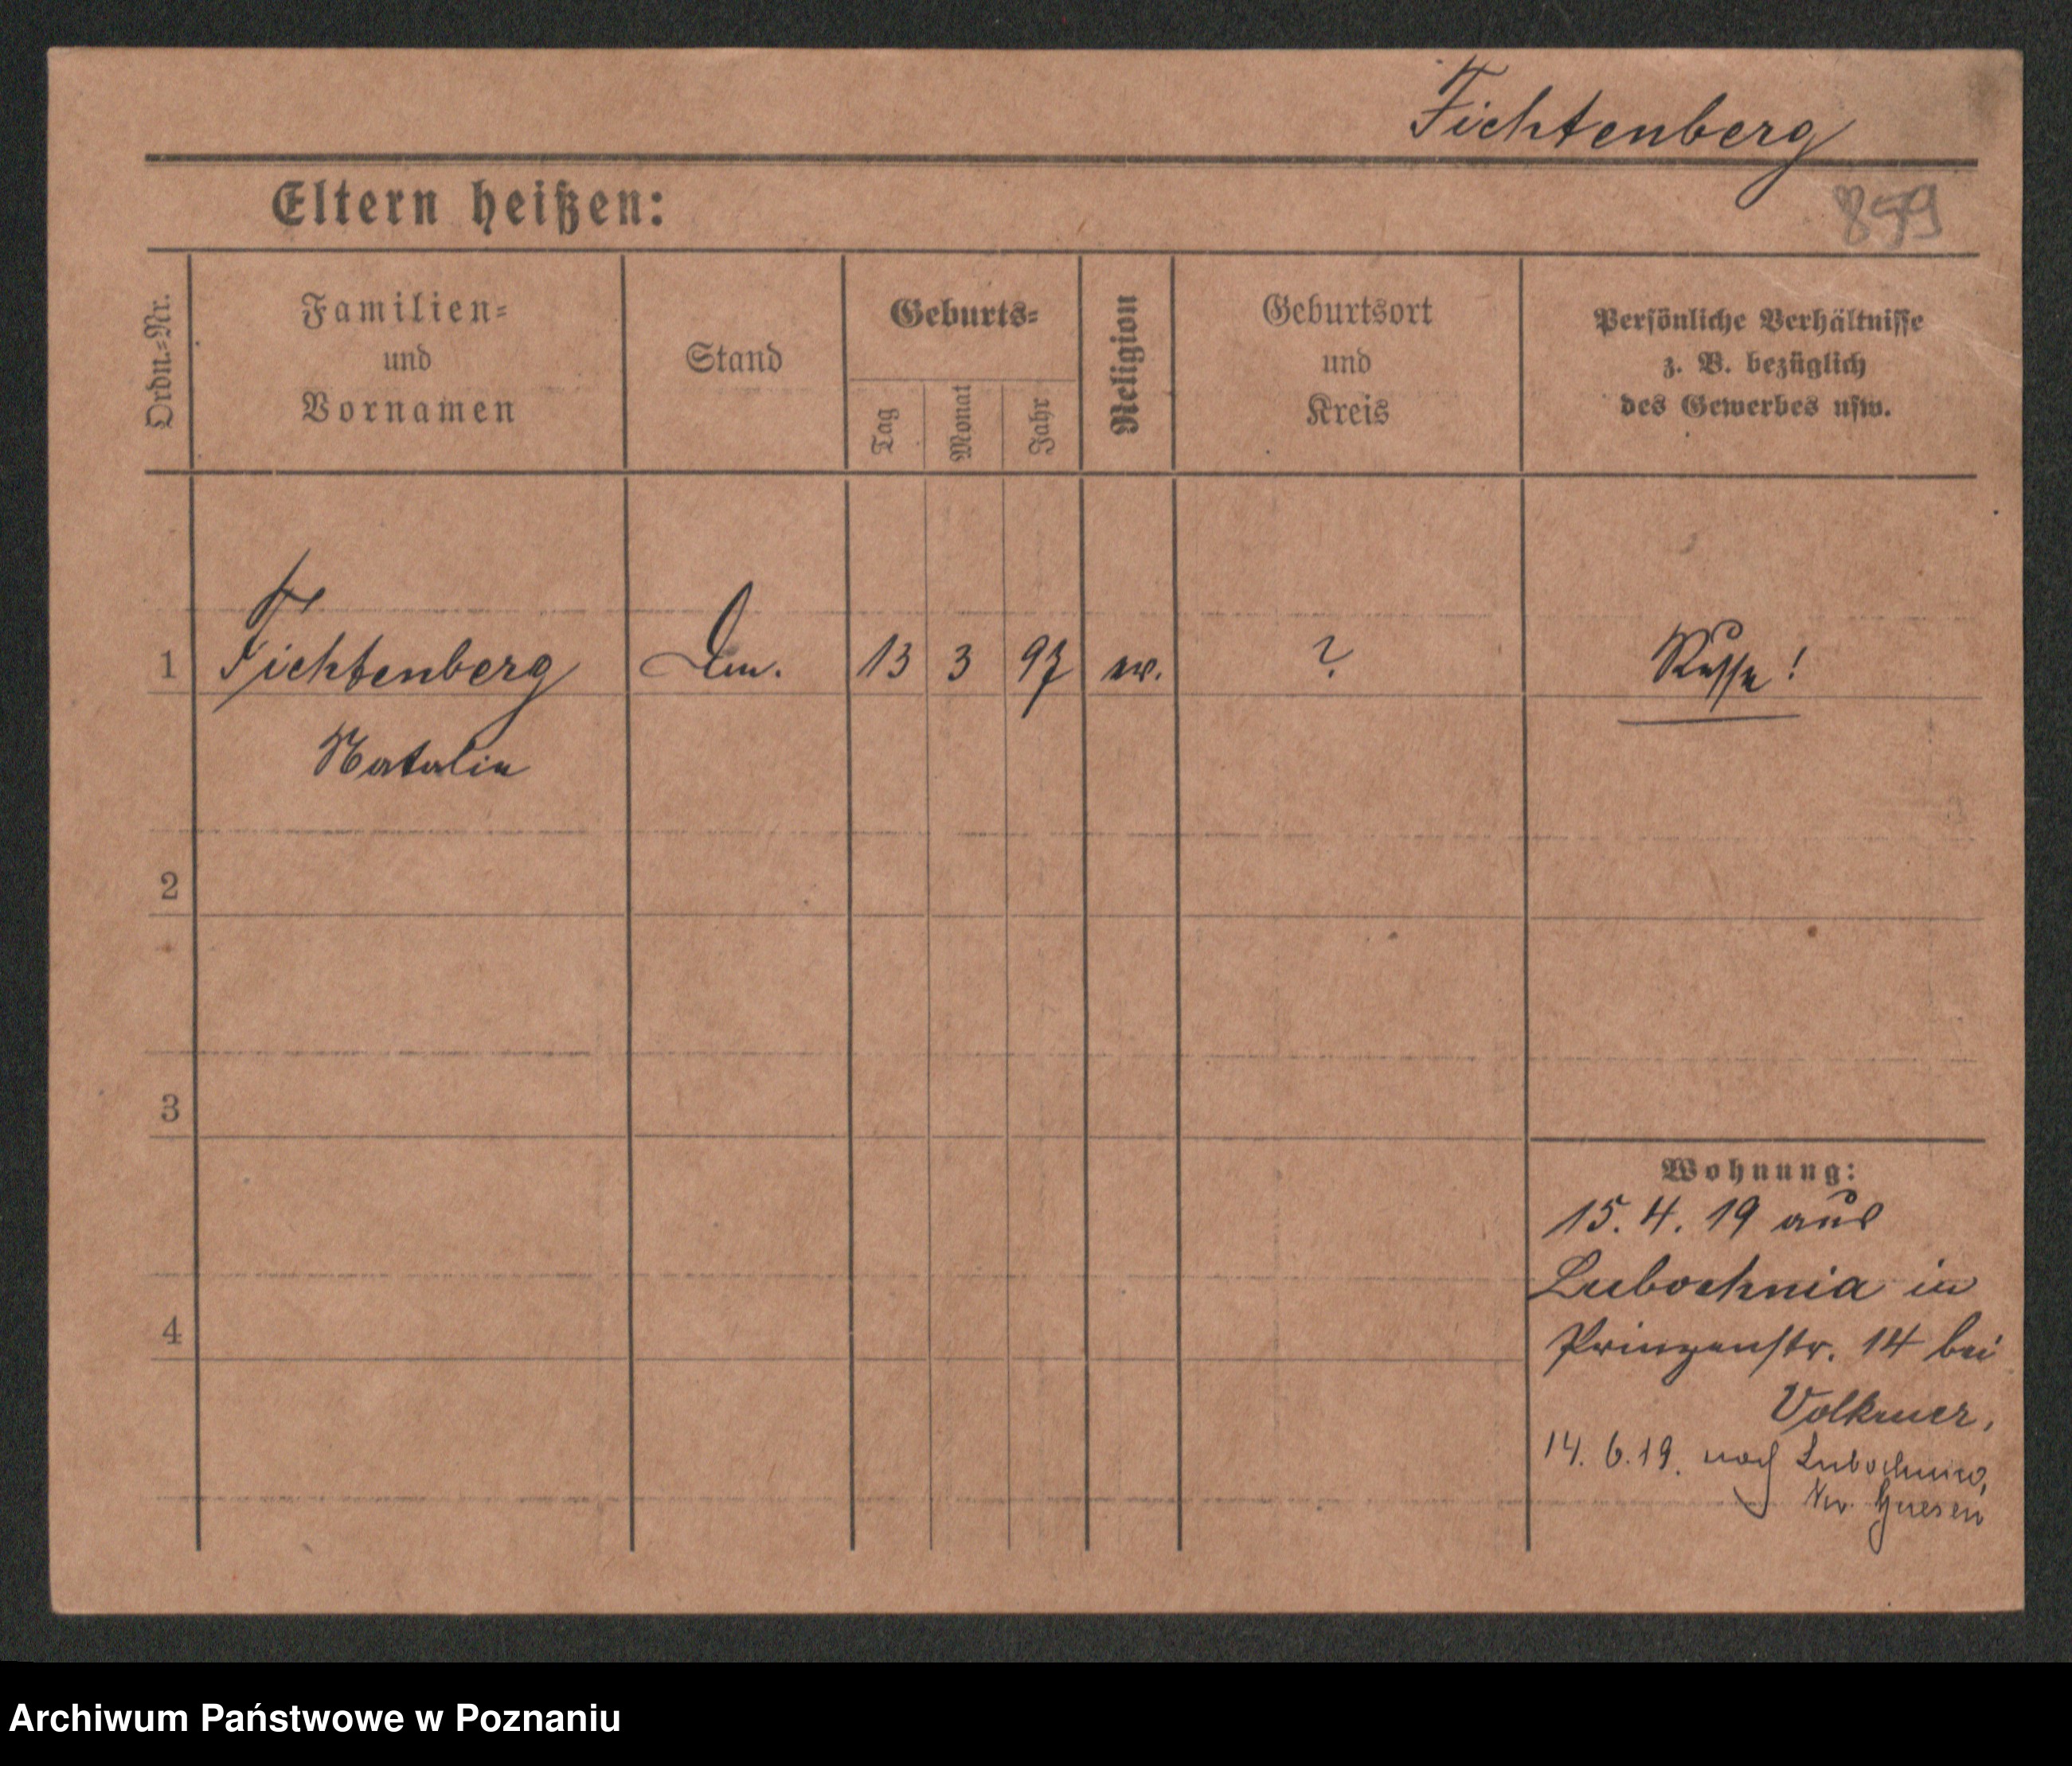 Fichtenberg
Eltern heißen:
859
Ordn.-Nr.
Familien-
und
Vornamen
Stand
Geburts-
Tag
Monat
Jahr
Religion
Geburtsort
und
Kreis
Persönliche Verhältnisse
z. B. bezüglich
des Gewerbes usw.
1 Fichtenberg 13 3 97 ev. ? Russe!
Natalie
2
3
4
Wohnung:
15. 4. 19 aus
Lubochnia in
Prinzenstr. 14 bei
Volkmer,
14. 6. 19. nach Lubochnia,
Kr. Gnesen
Archiwum Państwowe w Poznaniu